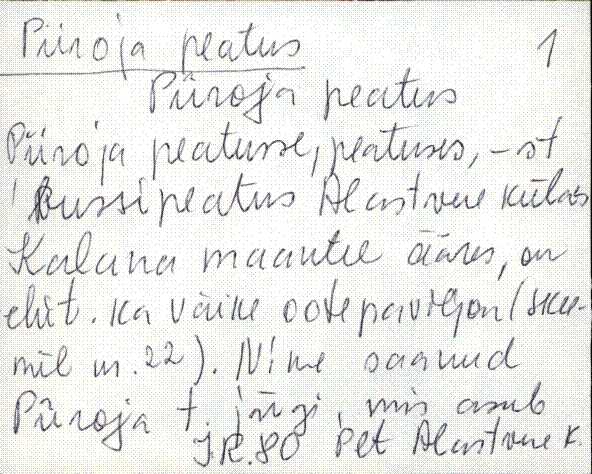 Piiroja peatus 1
Piiroja peatus
Piiroja peatusse, peatuses, -st
'Bussipeatus Alastvere külas
Kalana maantee ääres, on
ehit. ka väike ootepaviljon (skee-
mil nr. 22). Nime saanud
Piiroja t. järgi, mis asub
J.R. 80 Plt Alastvere k.